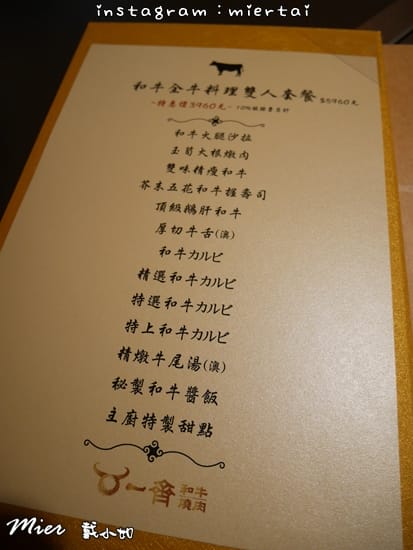 instagram : miertai
和牛全牛料理雙人套餐 $5960元
~特惠價3960元~ 10%服務費另計
和牛火腿沙拉
玉筍大根燉肉
雙味精瘦和牛
芥末五花和牛握壽司
頂級鵝肝和牛
厚切牛舌(澳)
和牛カルビ
精選和牛カルビ
特選和牛カルビ
特上和牛カルビ
精燉牛尾湯(澳)
秘製和牛醬飯
主廚特製甜點
一齊 和牛燒肉
Mier 戴小如